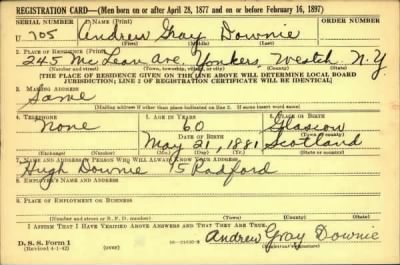 REGISTRATION CARD—(Men born on or after April 28, 1877 and on or before February 16, 1897)
SERIAL NUMBER 1. NAME (Print) ORDER NUMBER
U 705 Andrew Gray Downie
(First) (Middle) (Last)
2. PLACE OF RESIDENCE (Print)
245 McLean Ave. Yonkers, Westch. N.Y.
(Number and street) (Town, township, village, or city) (County) (State)
[THE PLACE OF RESIDENCE GIVEN ON THE LINE ABOVE WILL DETERMINE LOCAL BOARD
JURISDICTION; LINE 2 OF REGISTRATION CERTIFICATE WILL BE IDENTICAL]
3. MAILING ADDRESS
Same
(Mailing address if other than place indicated on line 2. If same insert word same)
4. TELEPHONE 5. AGE IN YEARS 6. PLACE OF BIRTH
None 60 Glascow
DATE OF BIRTH
May 21, 1881 Scotland
(Exchange) (Number) (Mo.) (Day) (Yr.) (State or country)
7. NAME AND ADDRESS OF PERSON WHO WILL ALWAYS KNOW YOUR ADDRESS
Hugh Downie 15 Radford
8. EMPLOYER'S NAME AND ADDRESS
9. PLACE OF EMPLOYMENT OR BUSINESS
(Number and street or R. F. D. number) (Town) (County) (State)
I AFFIRM THAT I HAVE VERIFIED ABOVE ANSWERS AND THAT THEY ARE TRUE.
D. S. S. Form 1
(Revised 4-1-42) (over)
Andrew Gray Downie
(Registrant's signature)